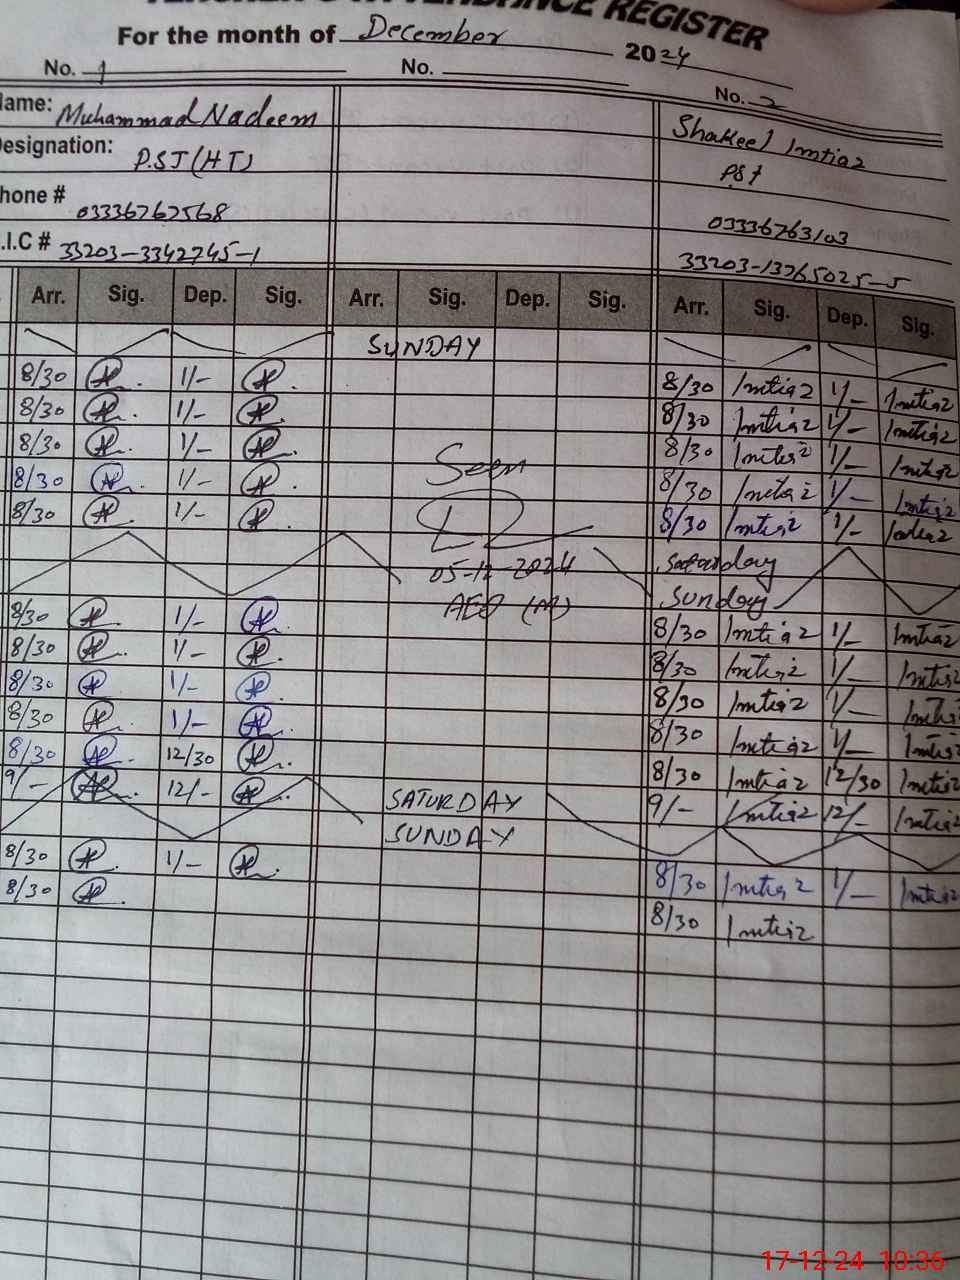 TEACHER'S ATTENDANCE REGISTER
For the month of December 2024
No. 1 No. No. 2
Name: Muhammad Nadeem Shakeel Imtiaz
Designation: P.S.T (HT) PST
Phone # 03336762568 03336763103
N.I.C # 33203-3342745-1 33203-13765025-5
Arr. Sig. Dep. Sig. Arr. Sig. Dep. Sig. Arr. Sig. Dep. Sig.
SUNDAY
8/30 1/- 8/30 Imtiaz 1/- Imtiaz
8/30 1/- 8/30 Imtiaz 1/- Imtiaz
8/30 1/- 8/30 Imtiaz 1/- Imtiaz
8/30 1/- Seen 8/30 Imtiaz 1/- Imtiaz
8/30 1/- 8/30 Imtiaz 1/- Imtiaz
05-12-2024 Saturday
AEO (M) Sunday
8/30 1/- 8/30 Imtiaz 1/- Imtiaz
8/30 1/- 8/30 Imtiaz 1/- Imtiaz
8/30 1/- 8/30 Imtiaz 1/- Imtiaz
8/30 1/- 8/30 Imtiaz 1/- Imtiaz
8/30 12/30 8/30 Imtiaz 12/30 Imtiaz
9/- 12/- SATURDAY 9/- Imtiaz 12/- Imtiaz
SUNDAY
8/30 1/- 8/30 Imtiaz 1/- Imtiaz
8/30 8/30 Imtiaz
17-12-24 10:36